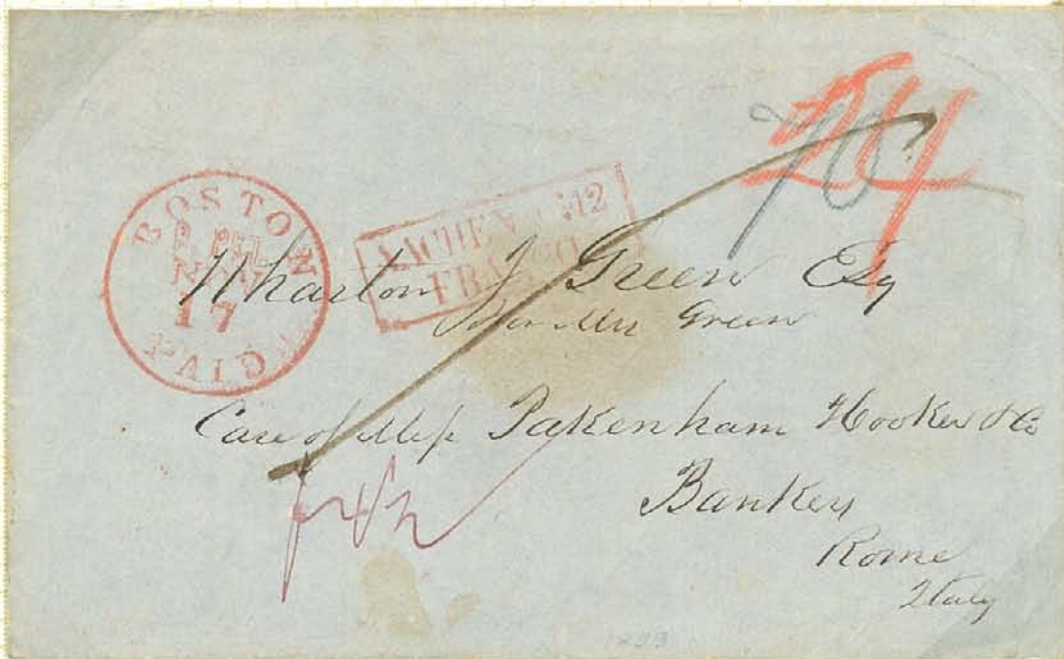 BOSTON
NOV
17
PAID
AACHEN 12
FRANCO
24
70
Wharton J Green Esq
or Mrs Green
Care of Mess Pakenham Hooker & Co
Bankers
Rome
Italy